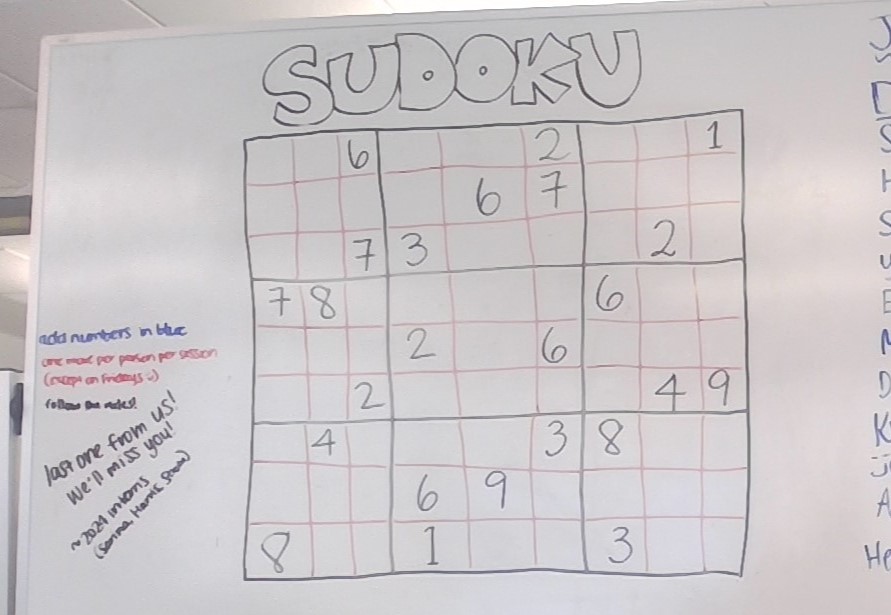 SUDOKU
6 2 1
6 7
7 3 2
7 8 6
2 6
2 4 9
4 3 8
6 9
8 1 3
add numbers in blue
one max per person per session
(except on Fridays :)
follow the rules!
last one from us!
We'll miss you!
~ 2024 interns
J
D
S
H
S
D
K
A
He